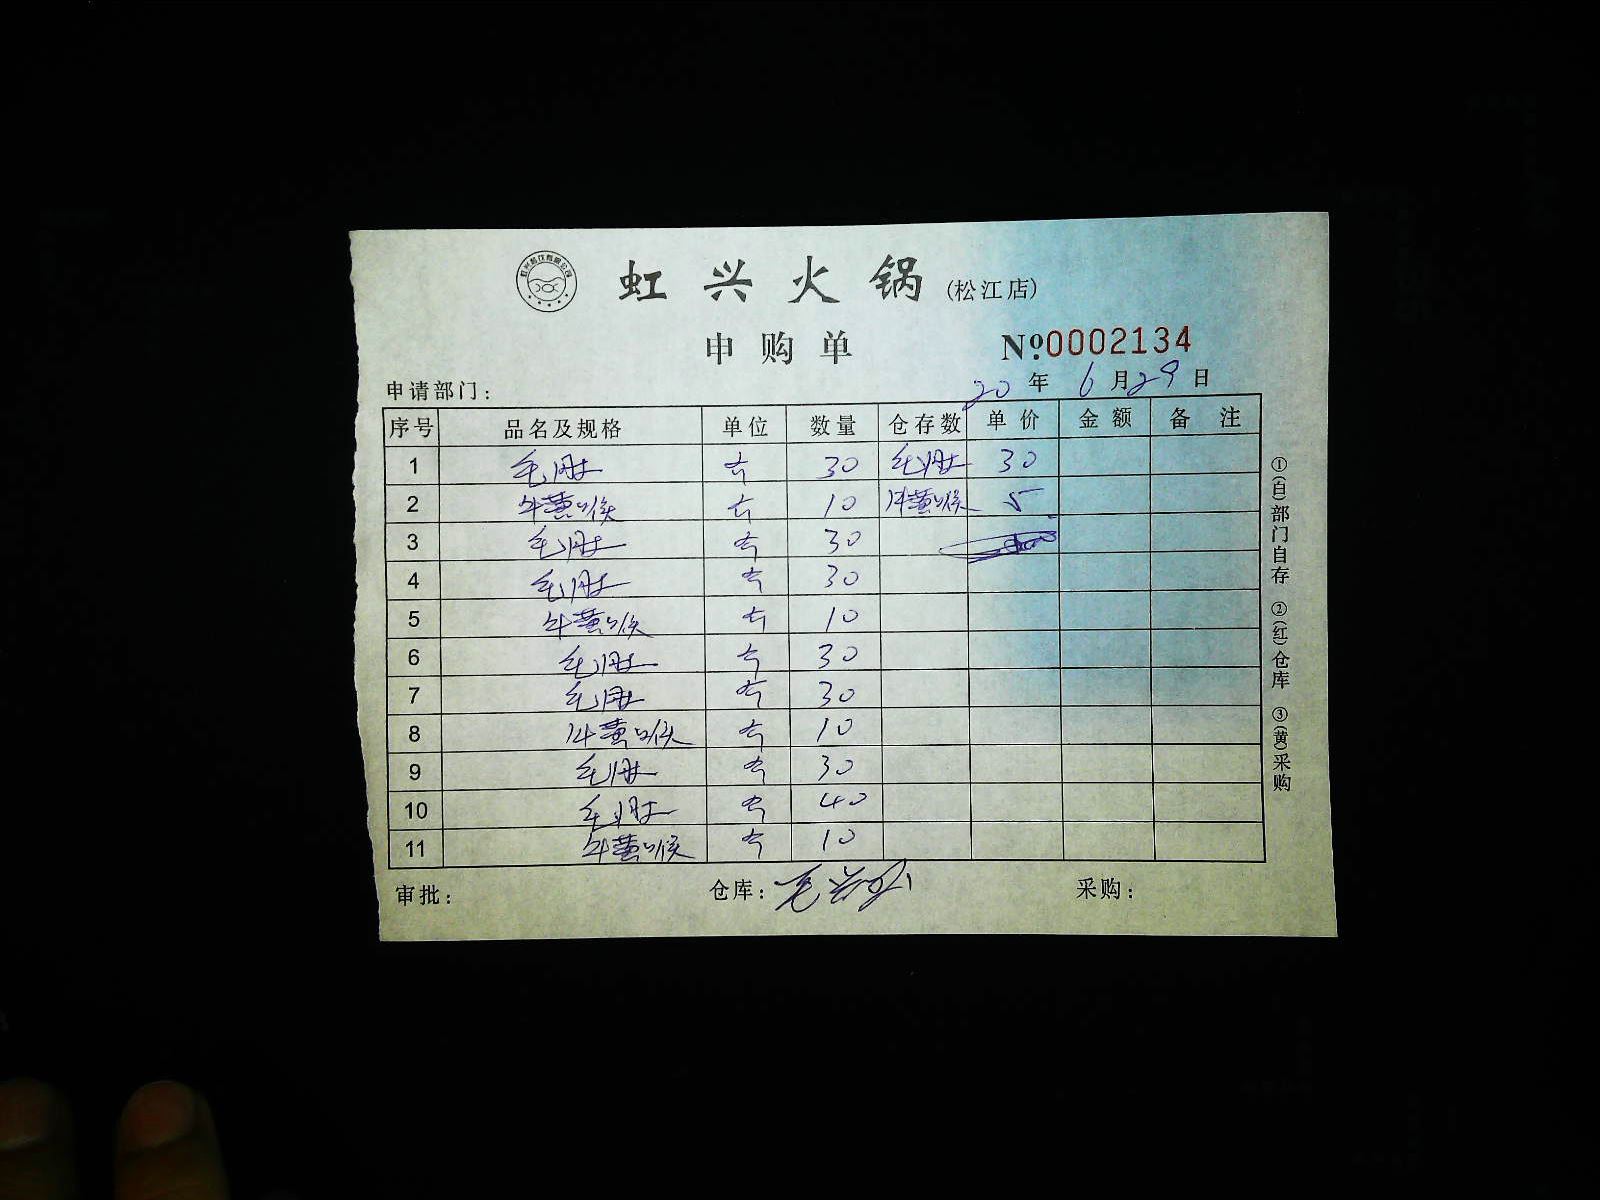 虹兴火锅(松江店)
申购单 №0002134
申请部门: 20年6月29日
序号 品名及规格 单位 数量 仓存数 单价 金额 备注
1 毛肚 斤 30 毛肚 30
2 牛黄喉 斤 10 牛黄喉 5
3 毛肚 斤 30
4 毛肚 斤 30
5 牛黄喉 斤 10
6 毛肚 斤 30
7 毛肚 斤 30
8 牛黄喉 斤 10
9 毛肚 斤 30
10 毛肚 斤 40
11 牛黄喉 斤 10
审批: 仓库: 采购:
①(白)部门自存 ②(红)仓库 ③(黄)采购